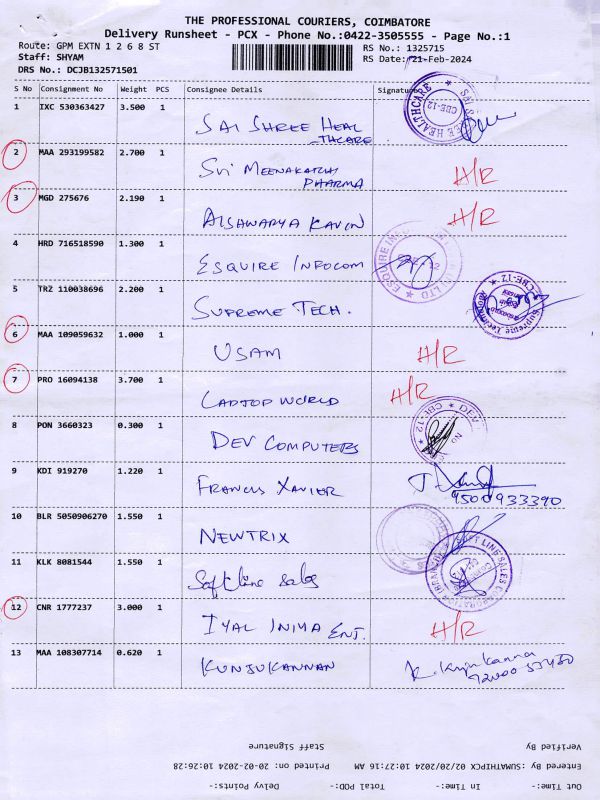 THE PROFESSIONAL COURIERS, COIMBATORE
Delivery Runsheet - PCX - Phone No.:0422-3505555 - Page No.:1
Route: GPM EXTN 1 2 6 8 ST RS No.: 1325715
Staff: SHYAM RS Date: 21-Feb-2024
DRS No.: DCJB132571501
S No Consignment No Weight PCS Consignee Details Signature
1 IXC 530363427 3.500 1
SAI SHREE HEAL
-THCARE
2 MAA 293199582 2.700 1
Sri MEENAKATHI H/R
PHARMA
3 MGD 275676 2.190 1 H/R
AISHWARYA KAVIN
4 HRD 716518590 1.300 1
ESQUIRE INFOCOM
5 TRZ 110038696 2.200 1
SUPREME TECH.
6 MAA 109059632 1.000 1
USAM H/R
7 PRO 16094138 3.700 1 H/R
LAPTOP WORLD
8 PON 3660323 0.300 1
DEV COMPUTERS
9 KDI 919270 1.220 1
FRANCIS XAVIER
9500933390
10 BLR 5050906270 1.550 1
NEWTRIX
11 KLK 8081544 1.550 1
Softline sales
12 CNR 1777237 3.000 1
IYAL INIYA ENT. H/R
13 MAA 108307714 0.620 1
KUNJUKANNAN
Verified By Staff Signature
Entered By: SUMATHIPCX 02/20/2024 10:27:16 AM Printed on: 20-02-2024 10:26:28
Out Time:- In Time:- Total POD:- Delvy Points:-